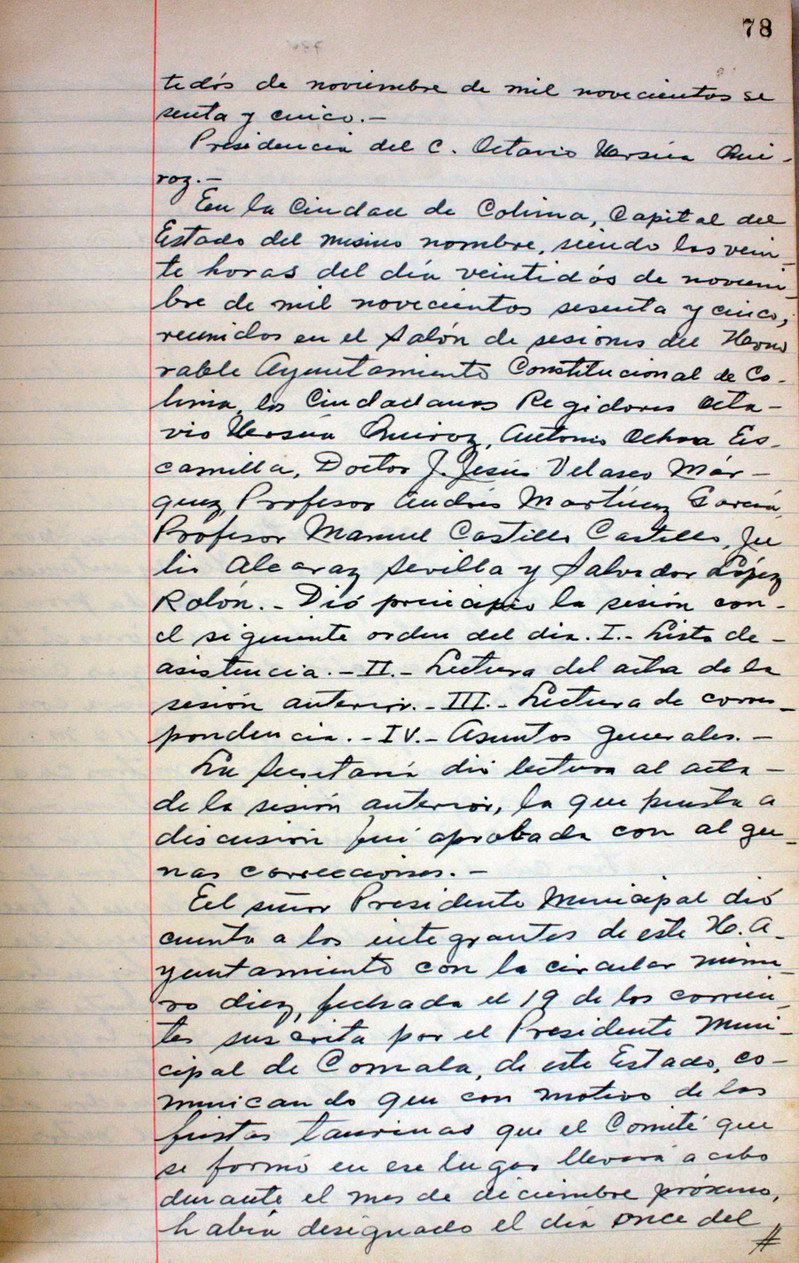 78
tidós de noviembre de mil novecientos se
senta y cinco.-
Presidencia del C. Octavio Ursúa Qui-
roz.-
En la Ciudad de Colima, Capital del
Estado del mismo nombre, siendo las vein-
te horas del día veintidós de noviem-
bre de mil novecientos sesenta y cinco,
reunidos en el Salón de sesiones del Hono
rable Ayuntamiento Constitucional de Co-
lima, los Ciudadanos Regidores Octa-
vio Ursúa Quiroz, Antonio Ochoa Es-
camilla, Doctor J. Jesús Velasco Már-
quez, Profesor Andrés Martínez García,
Profesor Manuel Castillo Castillo, Ju
lio Alcaraz Sevilla y Salvador López
Rolón.- Dió principio la sesión con-
el siguiente orden del día. I.- Lista de-
asistencia.- II.- Lectura del acta de la
sesión anterior.- III.- Lectura de corres-
pondencia.- IV.- Asuntos generales.-
La Secretaría dió lectura al acta-
de la sesión anterior, la que puesta a
discusión fué aprobada con algu-
nas correcciones.-
El señor Presidente Municipal dió
cuenta a los integrantes de este H. A-
yuntamiento con la circular núme-
ro diez, fechada el 19 de los corrien-
tes suscrita por el Presidente Muni-
cipal de Comala, de este Estado, co-
municando que con motivo de las
fiestas taurinas que el Comité que
se formó en ese lugar llevará a cabo
durante el mes de diciembre próximo,
había designado el día once del
#